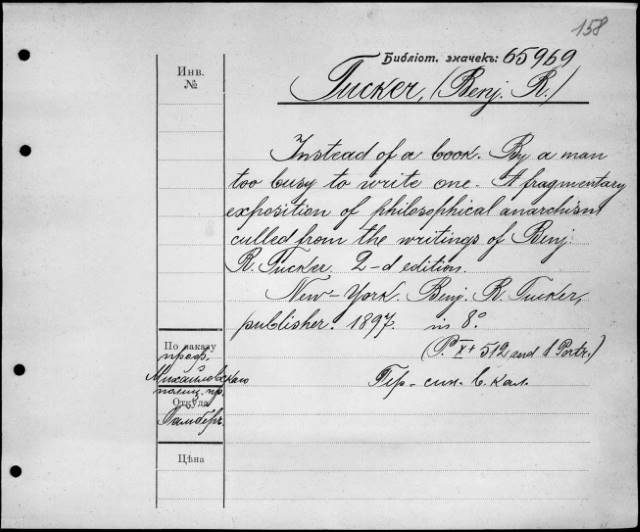 158
Библіот. значекъ: 65969
Инв.
№
Tucker, (Benj. R.)
Instead of a book. By a man
too busy to write one. A fragmentary
exposition of philosophical anarchism
culled from the writings of Benj.
R. Tucker. 2-d edition.
New-York. Benj. R. Tucker,
publisher. 1897. in 8º
(P. X + 512 and 1 Portr.)
По заказу
проф.
Михайловскаго
полиц. пр.
Откуда
Цѣна